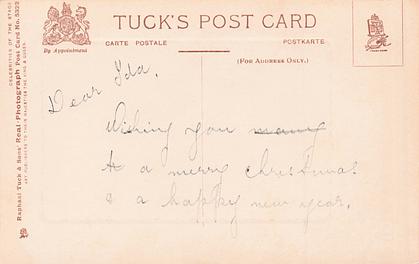 TUCK'S POST CARD
By Appointment
CARTE POSTALE
POSTKARTE
(FOR ADDRESS ONLY.)
CELEBRITIES OF THE STAGE
Raphael Tuck & Sons' Real-Photograph Post Card No. 5322
ART PUBLISHERS TO THEIR MAJESTIES THE KING & QUEEN
Dear Ida,
Wishing you many
a merry christmas
& a happy new year.